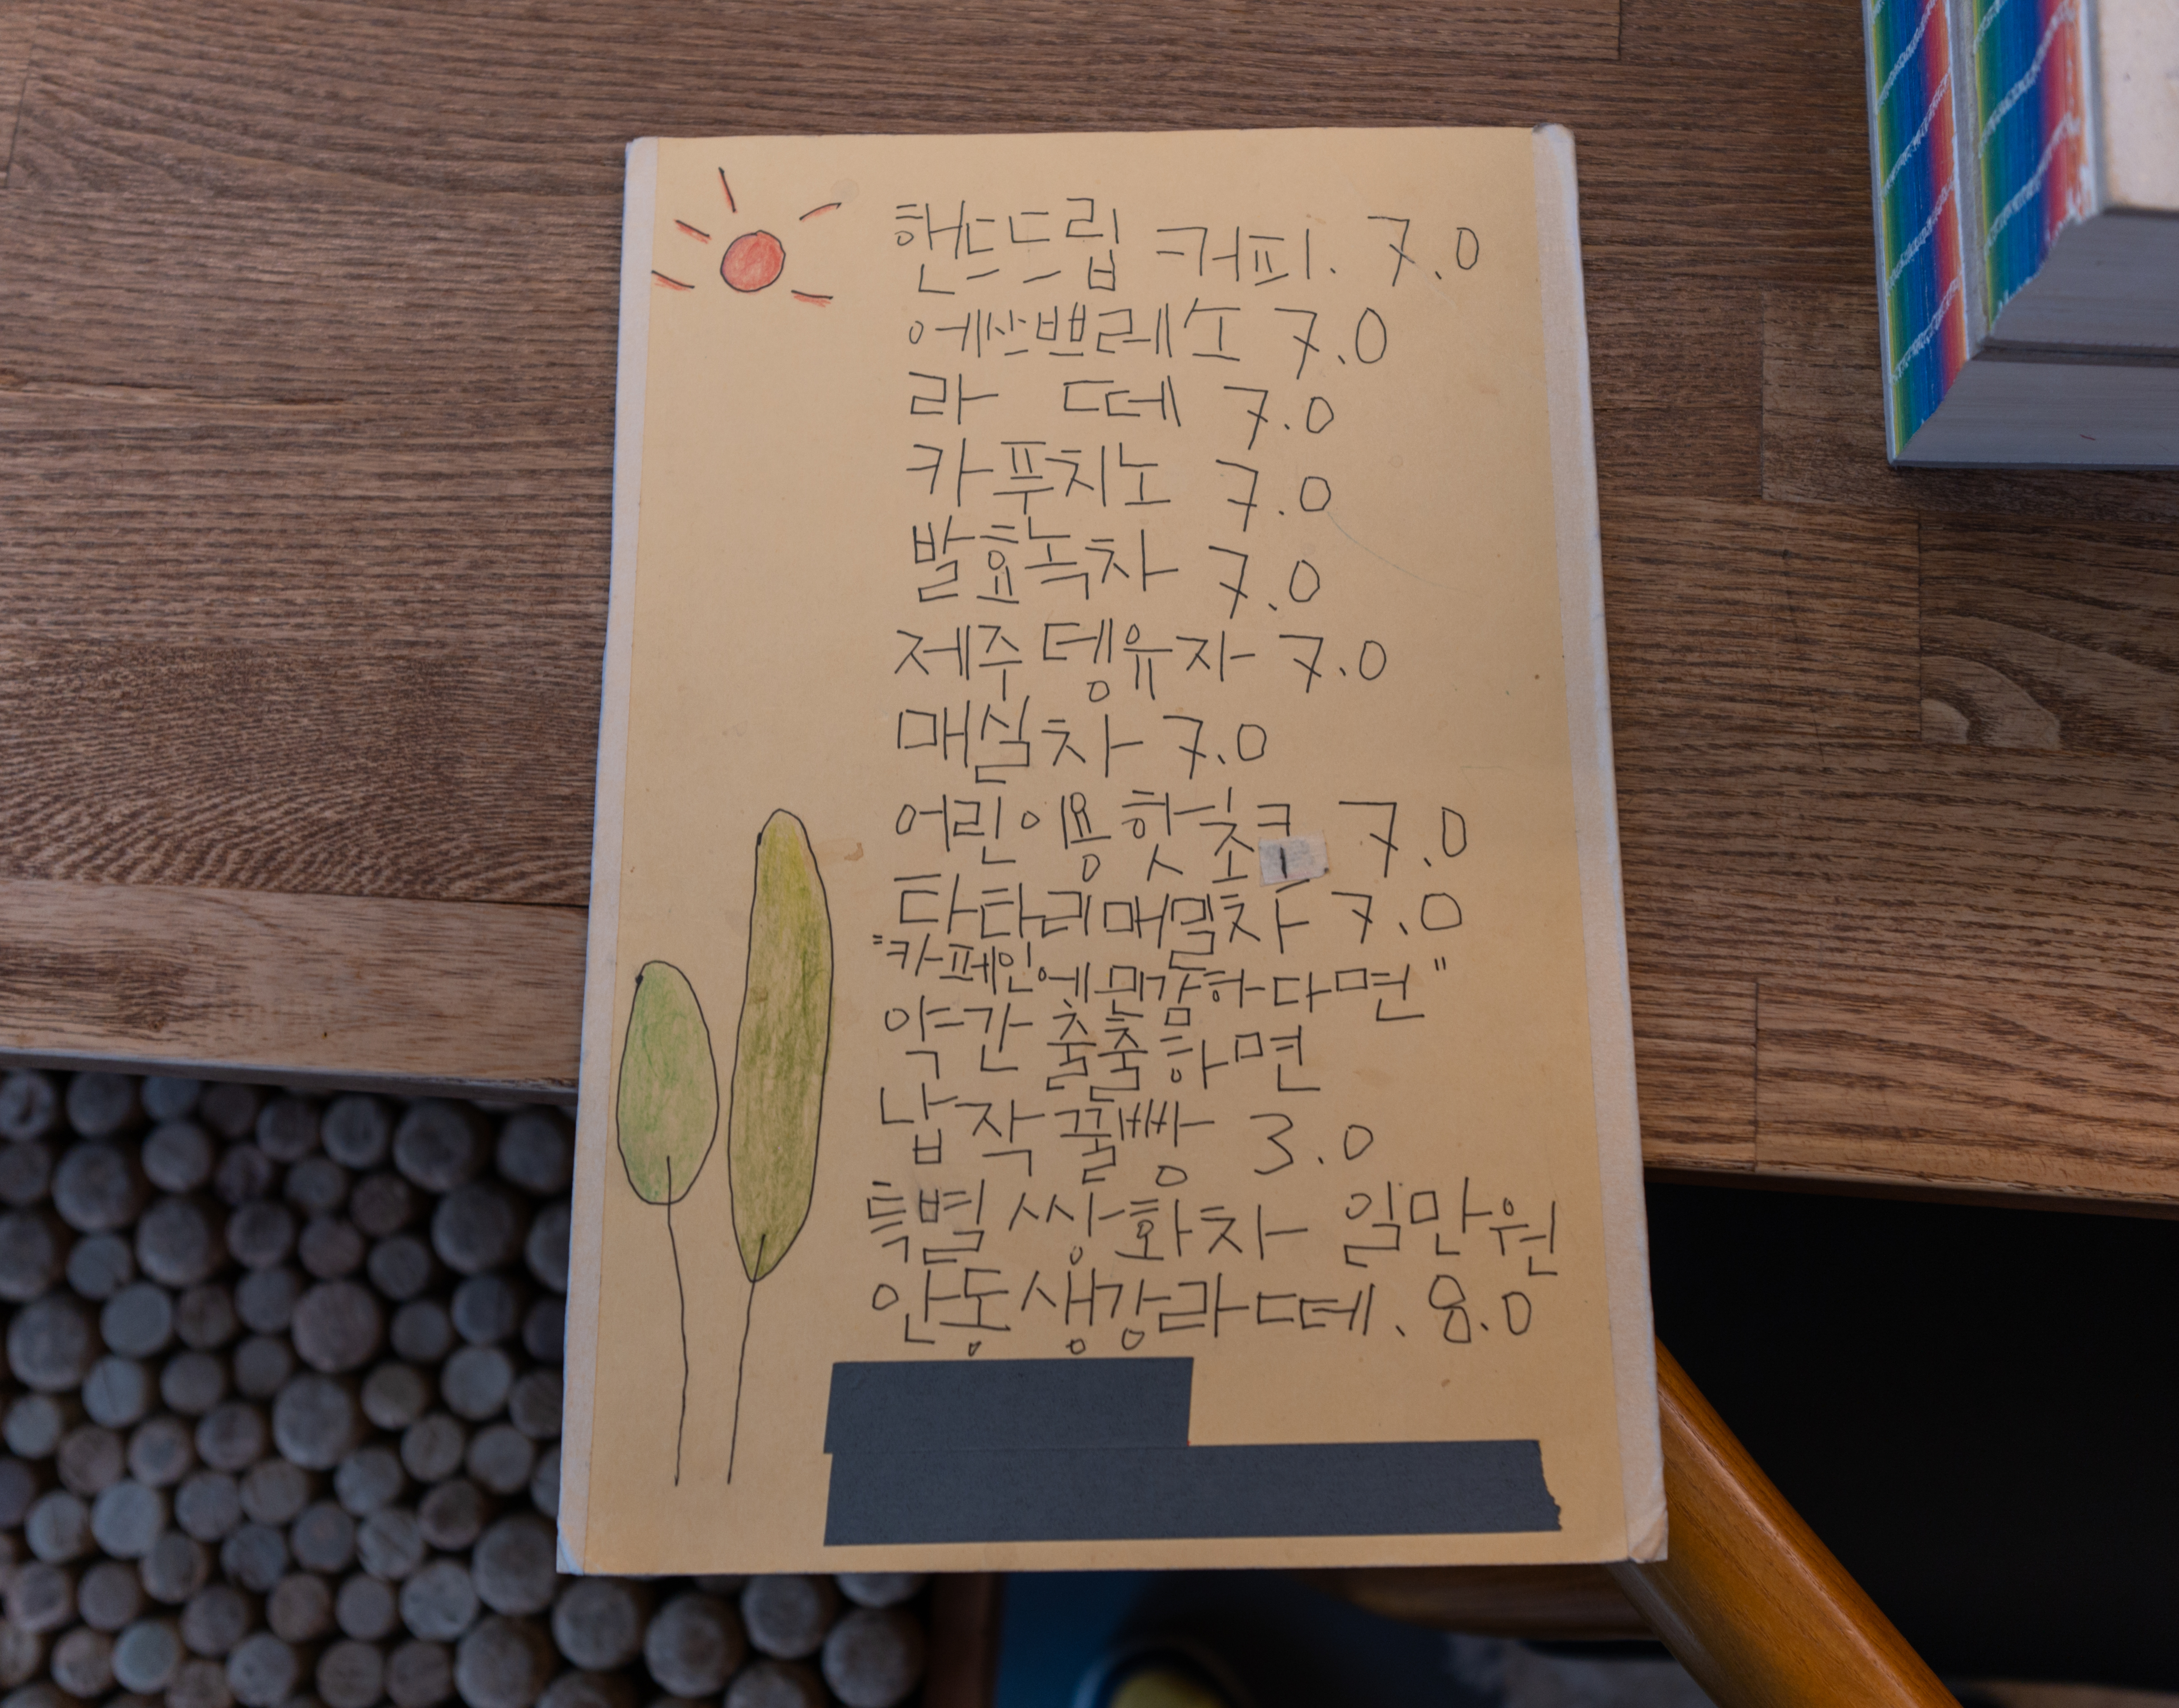 핸드드립 커피. 7.0
에쓰쁘레소 7.0
라 떼 7.0
카푸치노 7.0
발효녹차 7.0
제주 뎅유자 7.0
매실차 7.0
어린이용 핫초코 7.0
타타리메밀차 7.0
"카페인에 민감하다면"
약간 출출하면
납작 꿀빵 3.0
특별 쌍화차 일만원
안동생강라떼. 8.0